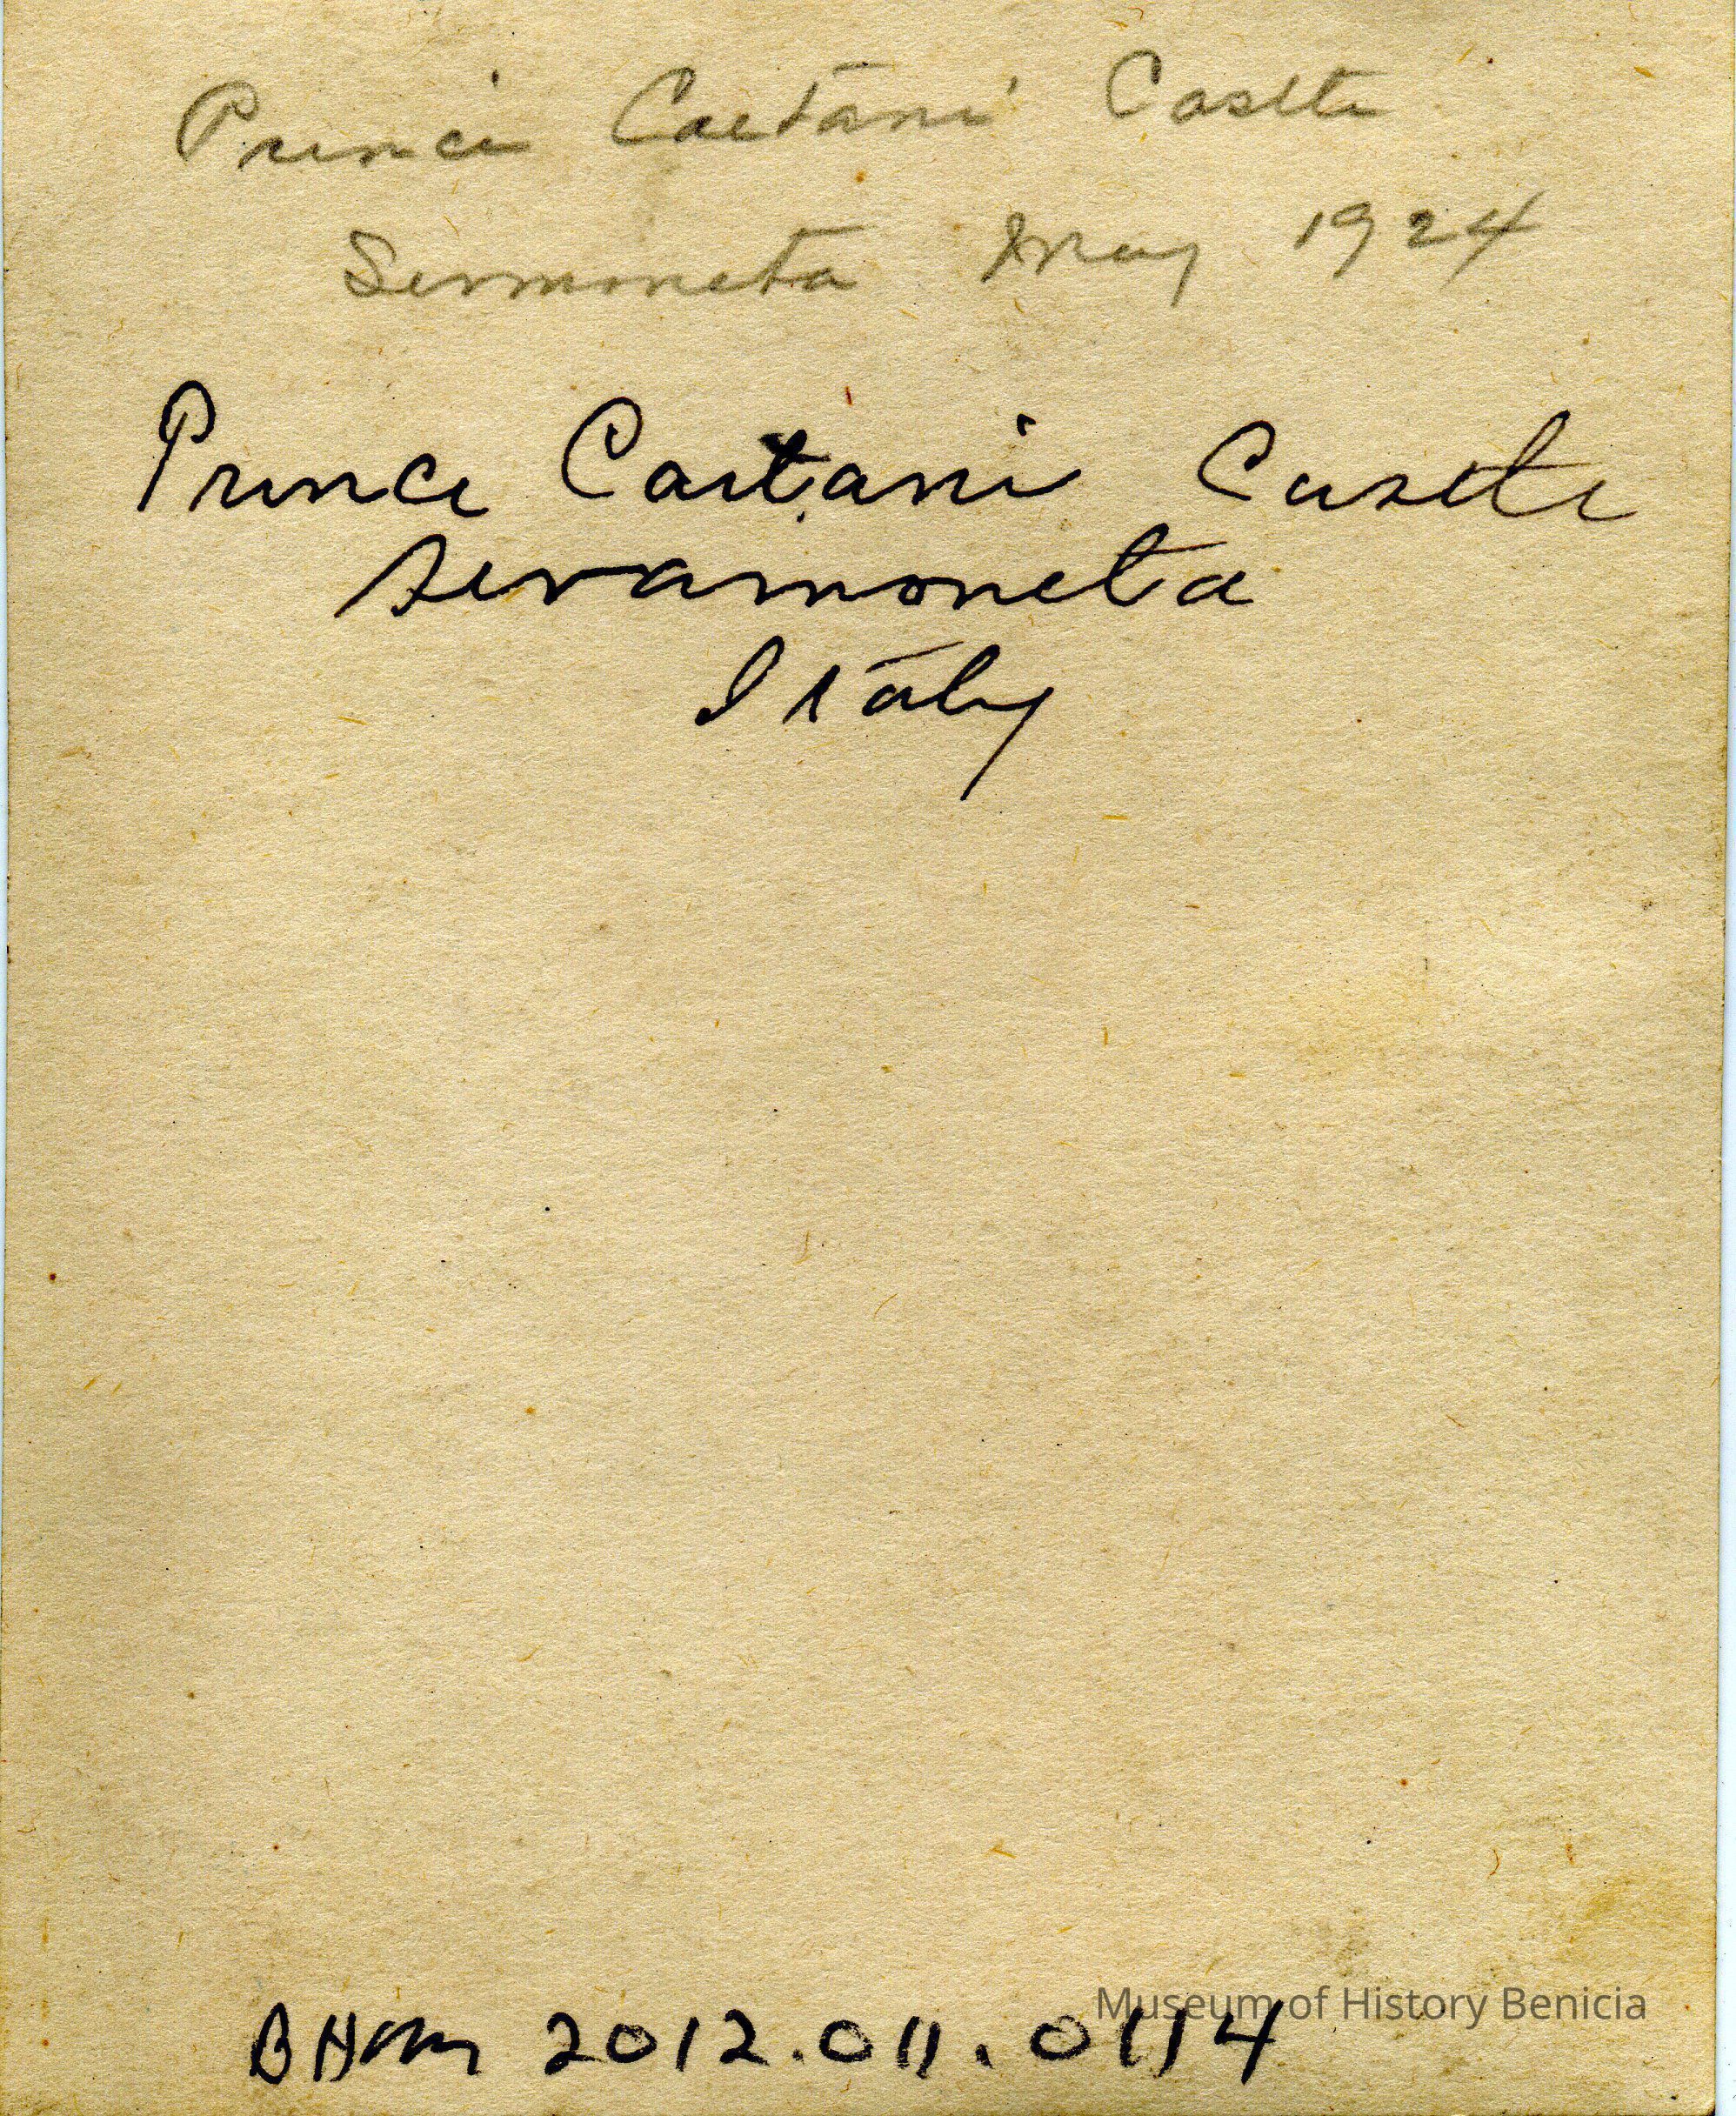 Prince Caetani Castle
Sermoneta May 1924
Prince Caetani Castle
Seramoneta
Italy
Museum of History Benicia
BHM 2012.011.0114